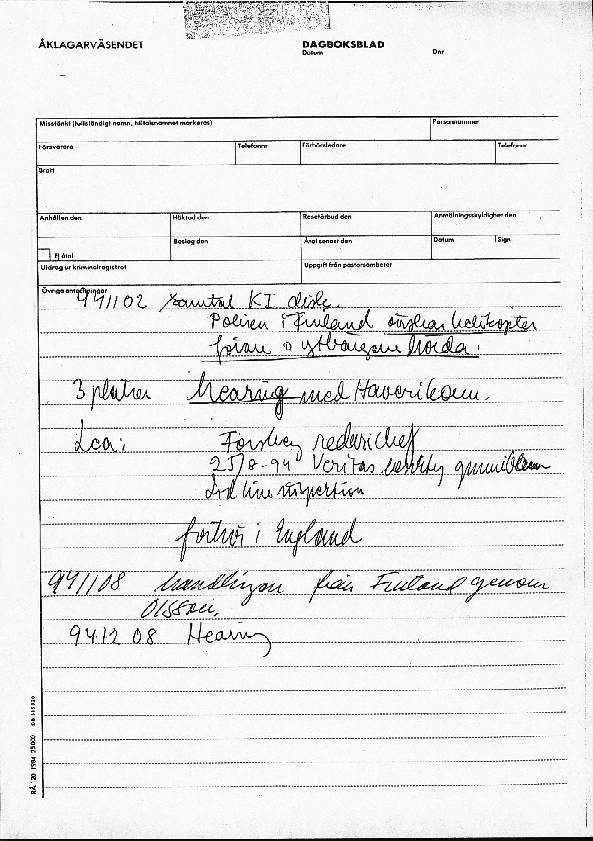 ÅKLAGARVÄSENDET
DAGBOKSBLAD
Datum Dnr
Misstänkt (fullständigt namn, tilltalsnamnet markeras) Personnummer
Försvarare Telefonnr Förhörsledare Telefonnr
Brott
Anhållen den Häktad den Reseförbud den Anmälningsskyldighet den
Beslag den Åtal senast den Datum Sign
Ej åtal
Utdrag ur kriminalregistret Uppgift från pastorsämbetet
Övriga anteckningar
941102 samtal KI
Polisen i Finland önskar helikopter
förare o ytbärgare hörda.
3 platser Hearing med Haverikom.
Lca: Forsberg rederichef
25/8-94 Veritas
förhör i England
941108 handlingar från Finland genom
Olsson.
941208 Hearing
RÅ 120 1984 25000